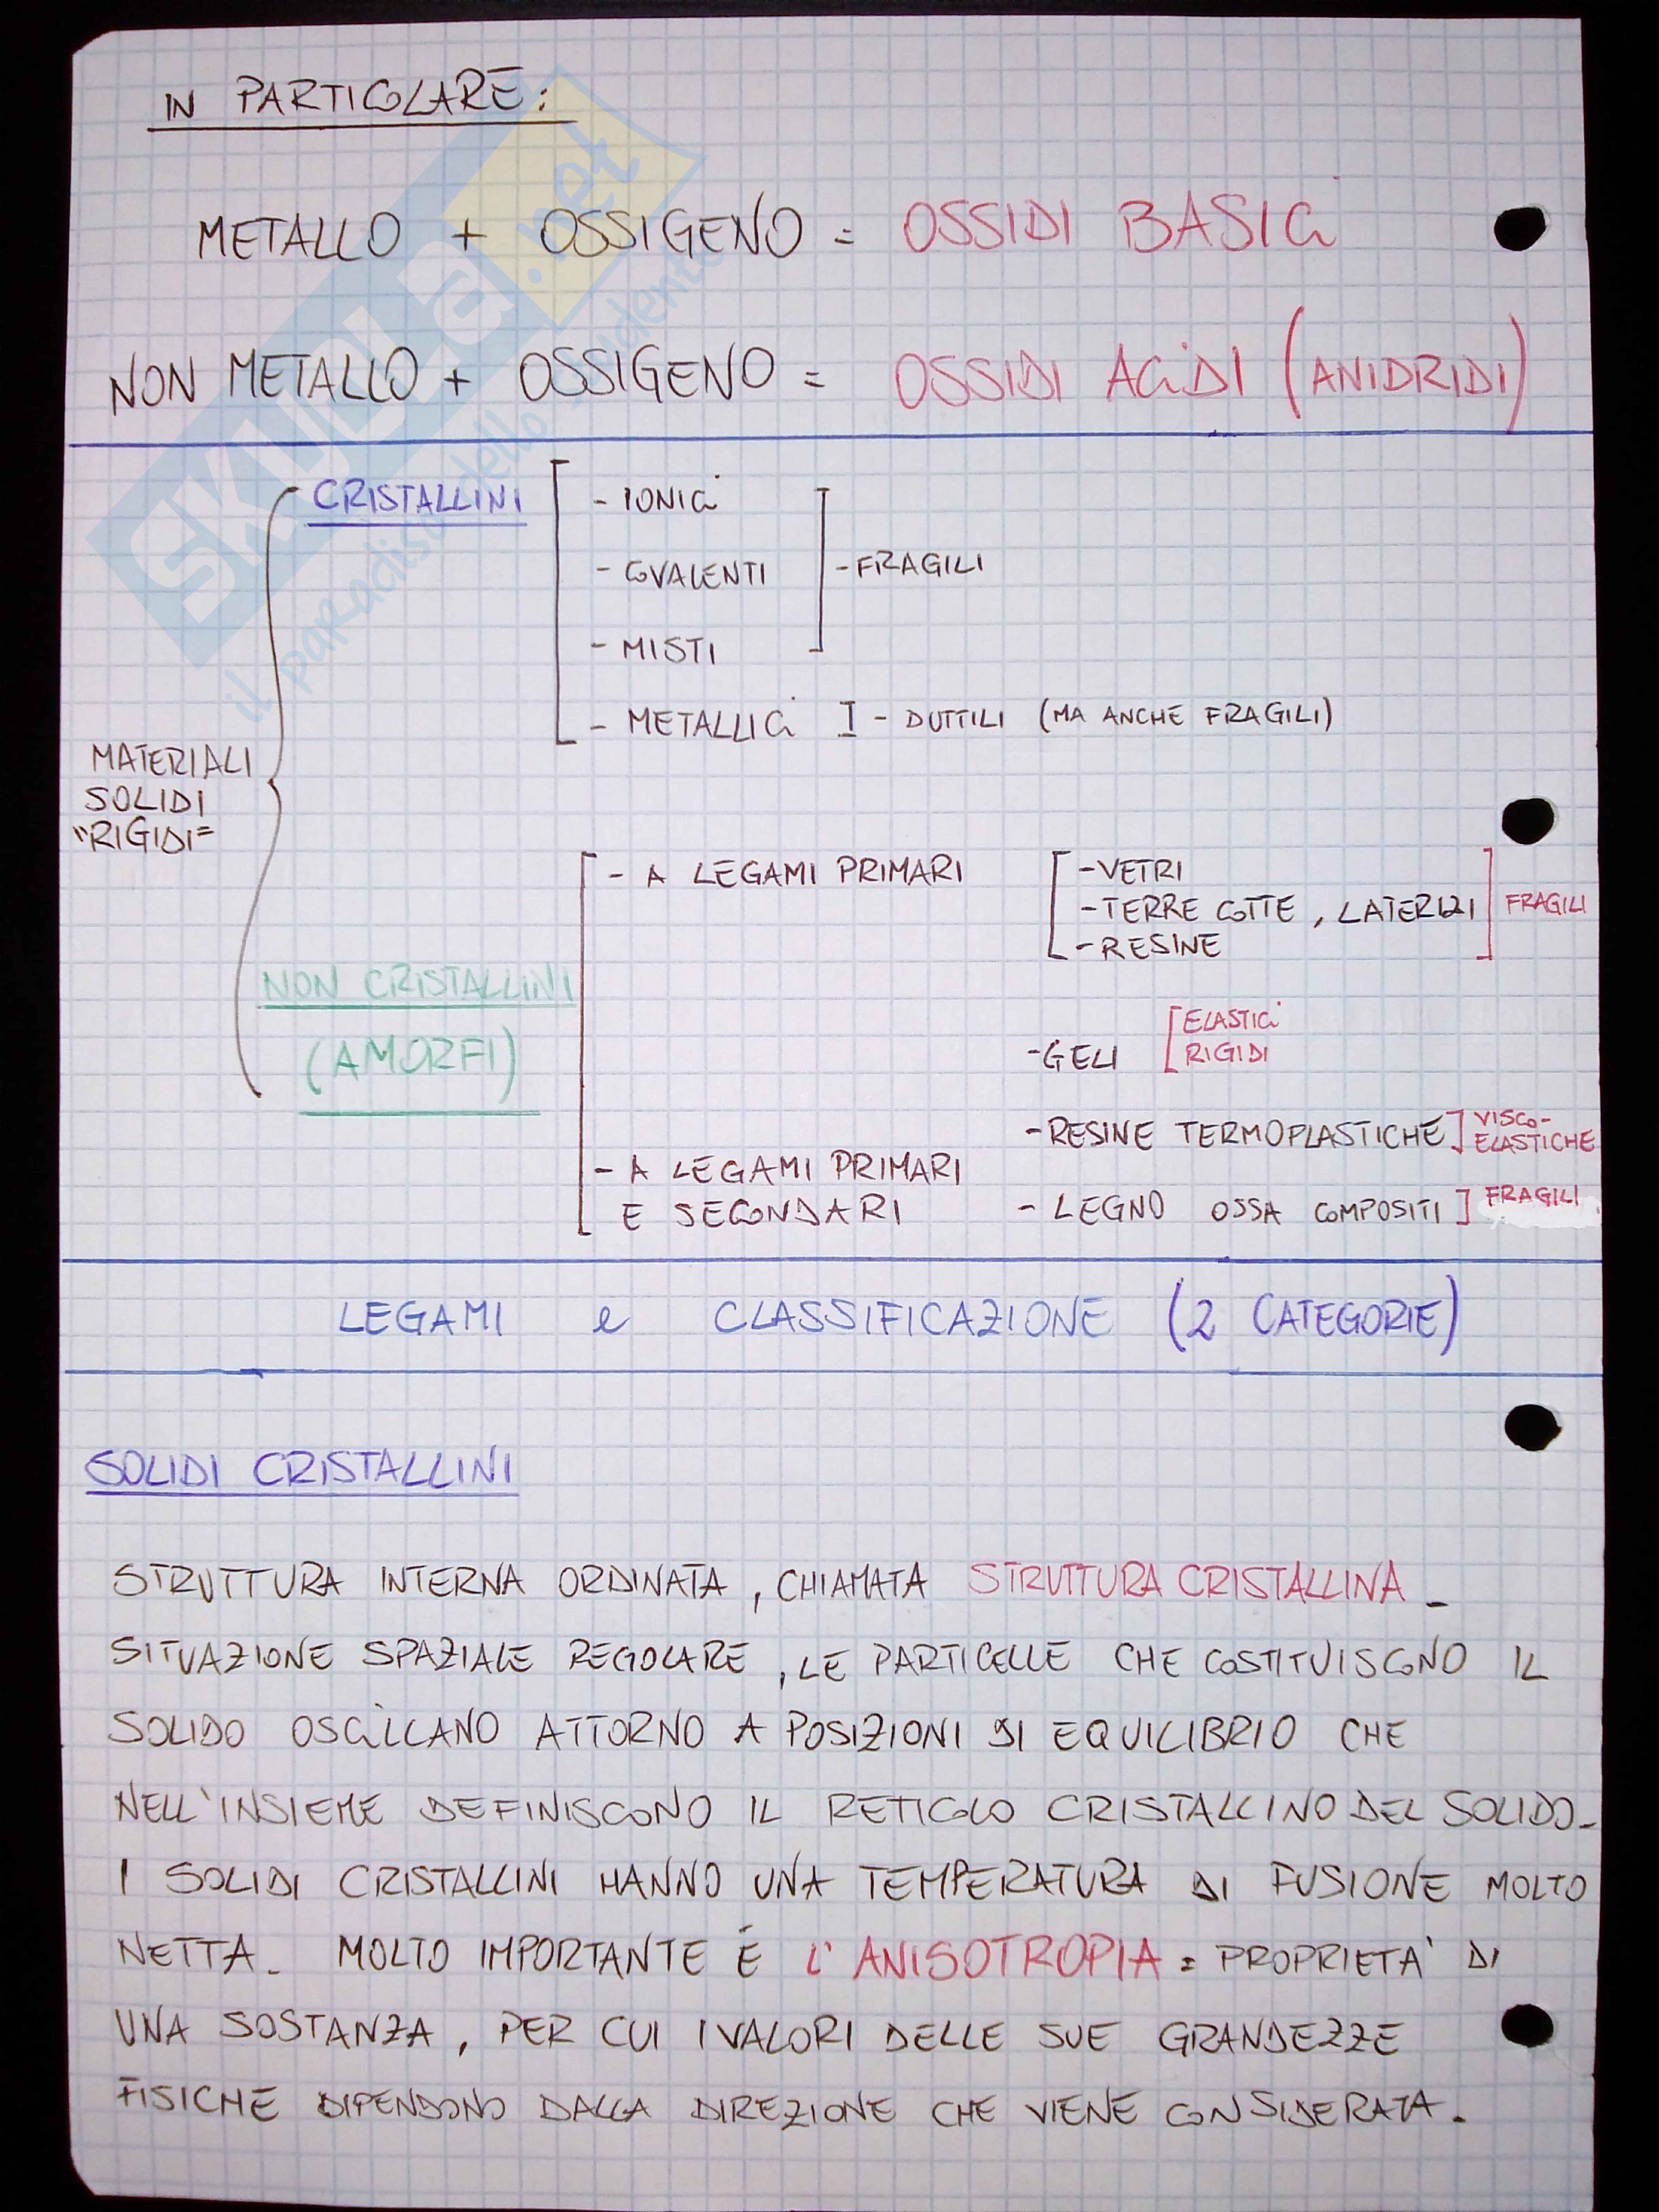 IN PARTICOLARE:
METALLO + OSSIGENO = OSSIDI BASICI
NON METALLO + OSSIGENO = OSSIDI ACIDI (ANIDRIDI)
SKUOLA.net
il paradiso dello studente
CRISTALLINI
- IONICI
- COVALENTI
- MISTI
- FRAGILI
- METALLICI I - DUTTILI (MA ANCHE FRAGILI)
MATERIALI
SOLIDI
"RIGIDI"
NON CRISTALLINI
(AMORFI)
- A LEGAMI PRIMARI
- VETRI
- TERRE COTTE, LATERIZI
- RESINE
FRAGILI
- GELI
ELASTICI
RIGIDI
- RESINE TERMOPLASTICHE
VISCO-
ELASTICHE
- A LEGAMI PRIMARI
E SECONDARI
- LEGNO OSSA COMPOSITI
FRAGILI
LEGAMI e CLASSIFICAZIONE (2 CATEGORIE)
SOLIDI CRISTALLINI
STRUTTURA INTERNA ORDINATA, CHIAMATA STRUTTURA CRISTALLINA -
SITUAZIONE SPAZIALE REGOLARE, LE PARTICELLE CHE COSTITUISCONO IL
SOLIDO OSCILLANO ATTORNO A POSIZIONI DI EQUILIBRIO CHE
NELL'INSIEME DEFINISCONO IL RETICOLO CRISTALLINO DEL SOLIDO-
I SOLIDI CRISTALLINI HANNO UNA TEMPERATURA DI FUSIONE MOLTO
NETTA. MOLTO IMPORTANTE È L'ANISOTROPIA = PROPRIETA' DI
UNA SOSTANZA, PER CUI I VALORI DELLE SUE GRANDEZZE
FISICHE DIPENDONO DALLA DIREZIONE CHE VIENE CONSIDERATA.